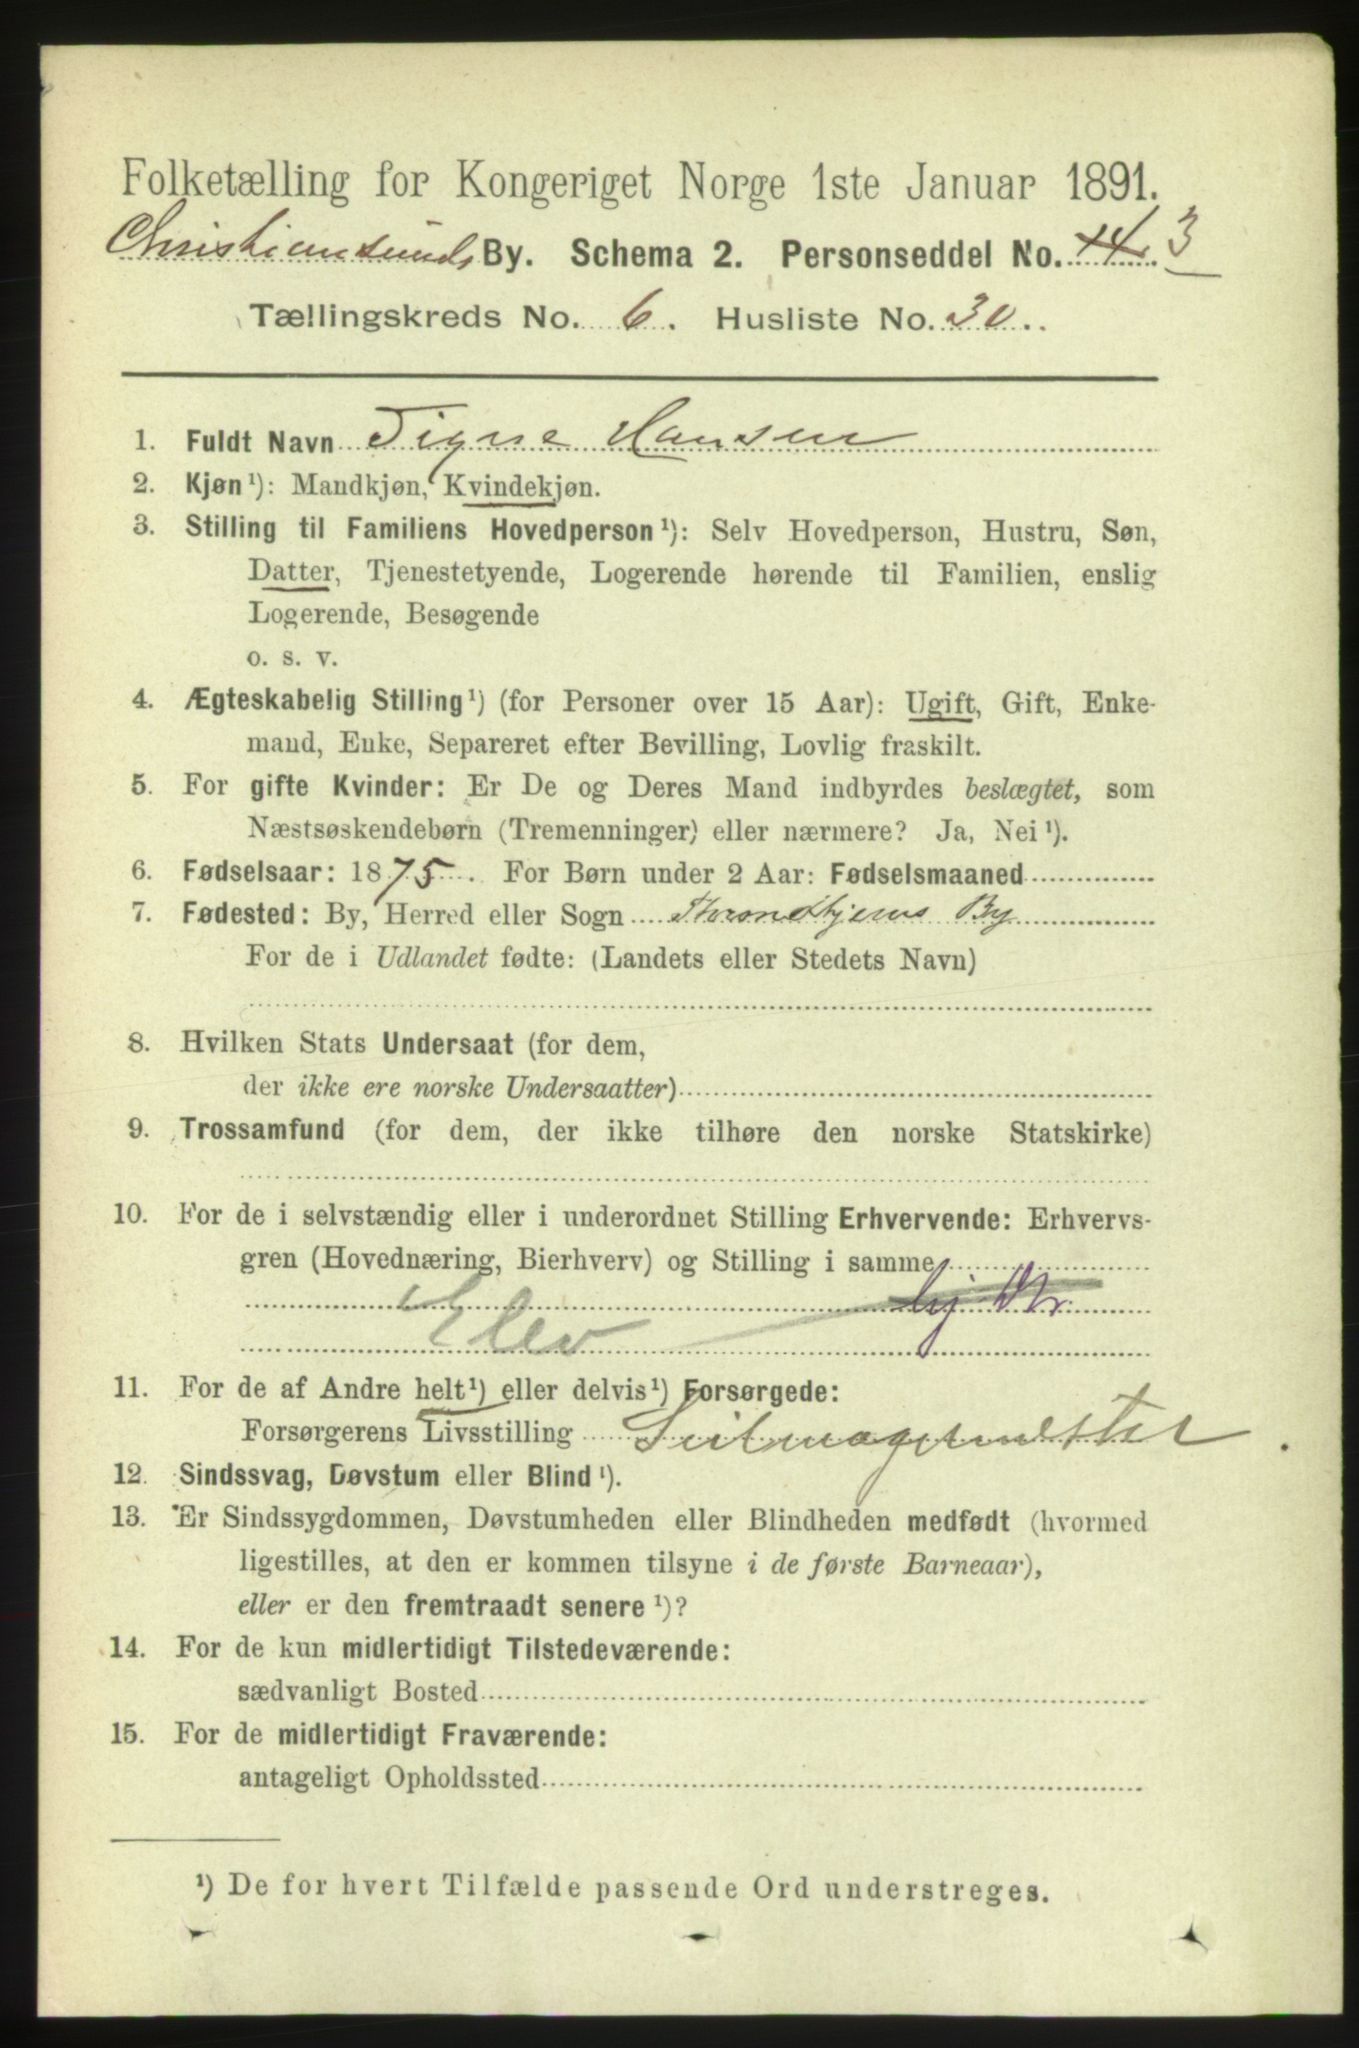 Folketælling for Kongeriget Norge 1ste Januar 1891.
Christiansunds By. Schema 2. Personseddel No. 14. 3
Tællingskreds No. 6. Husliste No. 30.
1. Fuldt Navn Signe Hansen
2. Kjøn ¹): Mandkjøn, Kvindekjøn.
3. Stilling til Familiens Hovedperson ¹): Selv Hovedperson, Hustru, Søn,
Datter, Tjenestetyende, Logerende hørende til Familien, enslig
Logerende, Besøgende
o. s. v.
4. Ægteskabelig Stilling ¹) (for Personer over 15 Aar): Ugift, Gift, Enke-
mand, Enke, Separeret efter Bevilling, Lovlig fraskilt.
5. For gifte Kvinder: Er De og Deres Mand indbyrdes beslægtet, som
Næstsøskendebørn (Tremenninger) eller nærmere? Ja, Nei ¹).
6. Fødselsaar: 1875. For Børn under 2 Aar: Fødselsmaaned
7. Fødested: By, Herred eller Sogn Throndhjems By
For de i Udlandet fødte: (Landets eller Stedets Navn)
8. Hvilken Stats Undersaat (for dem,
der ikke ere norske Undersaatter)
9. Trossamfund (for dem, der ikke tilhøre den norske Statskirke)
10. For de i selvstændig eller i underordnet Stilling Erhvervende: Erhvervs-
gren (Hovednæring, Bierhverv) og Stilling i samme
Elev
11. For de af Andre helt ¹) eller delvis ¹) Forsørgede:
Forsørgerens Livsstilling Seilmagermester
12. Sindssvag, Døvstum eller Blind ¹).
13. Er Sindssygdommen, Døvstumheden eller Blindheden medfødt (hvormed
ligestilles, at den er kommen tilsyne i de første Barneaar),
eller er den fremtraadt senere ¹)?
14. For de kun midlertidigt Tilstedeværende:
sædvanligt Bosted
15. For de midlertidigt Fraværende:
antageligt Opholdssted
¹) De for hvert Tilfælde passende Ord understreges.